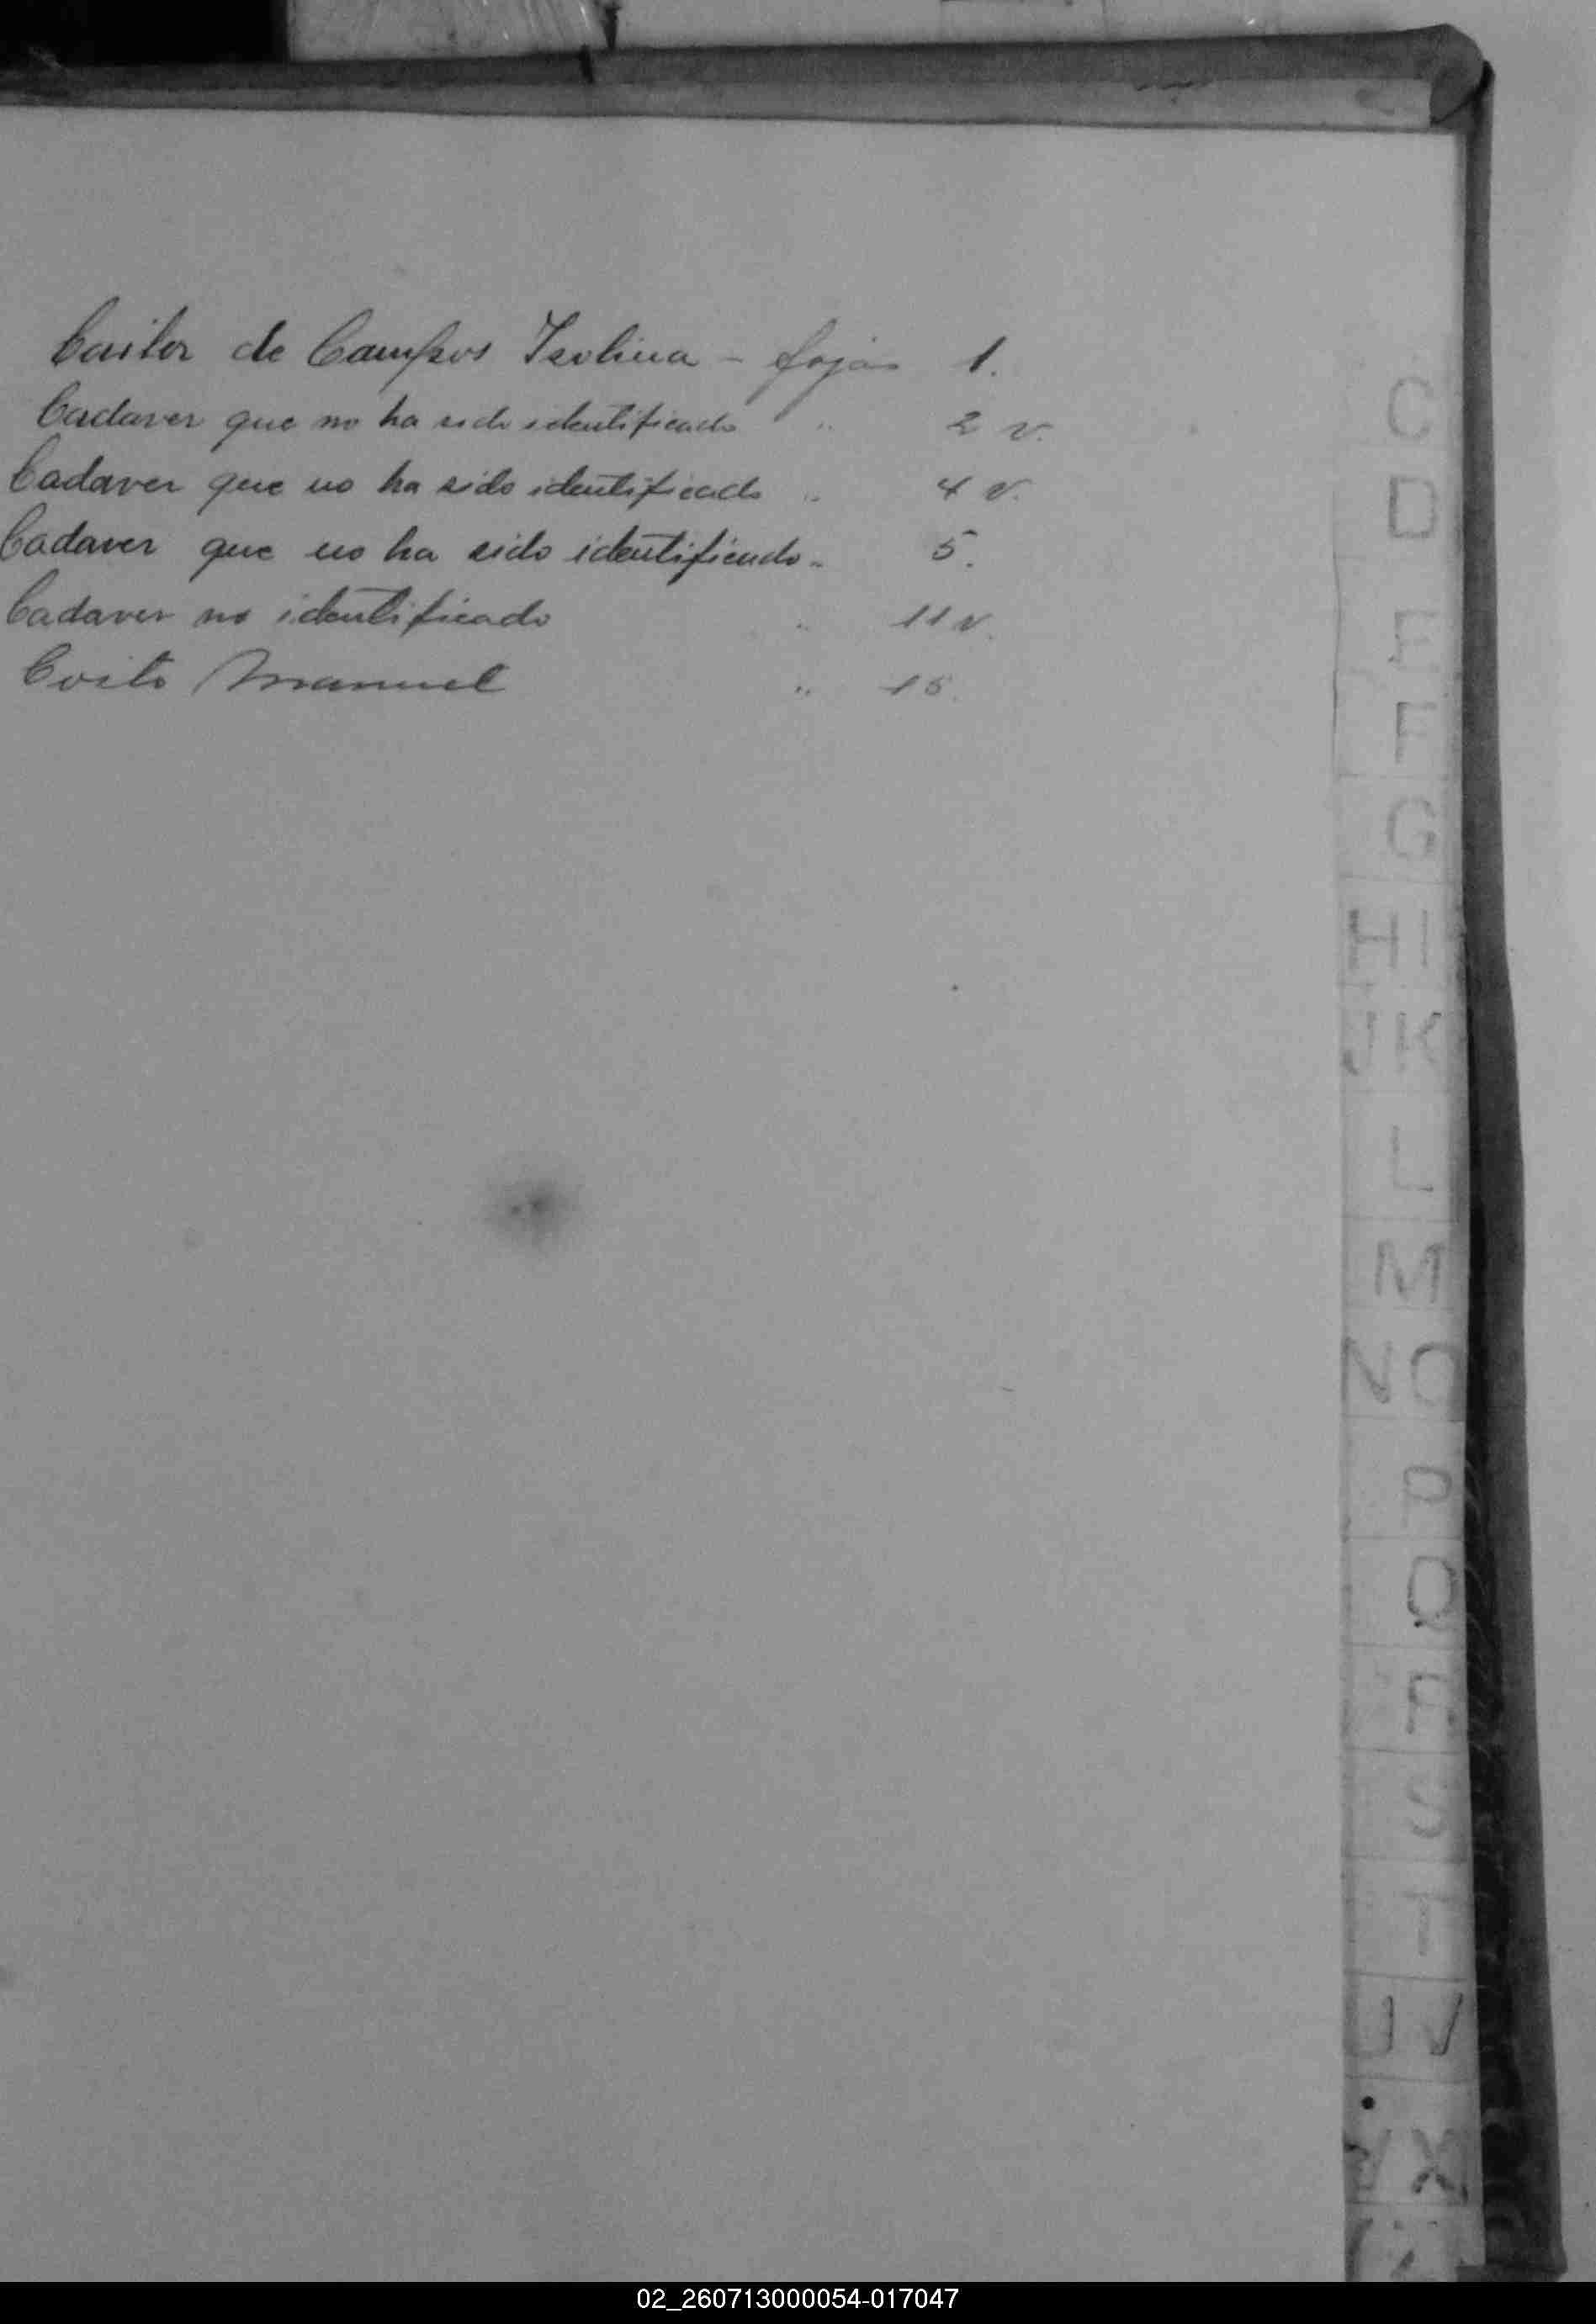 Casilor de Campos Isolina - fojas 1.
Cadaver que no ha sido identificado " 2 v.
Cadaver que no ha sido identificado " 4 v.
Cadaver que no ha sido identificado " 5.
Cadaver no identificado " 11 v.
Cosito Manuel " 15.
C
D
E
F
G
H I
J K
L
M
N O
P
Q
R
S
T
U V
X
02_260713000054-017047